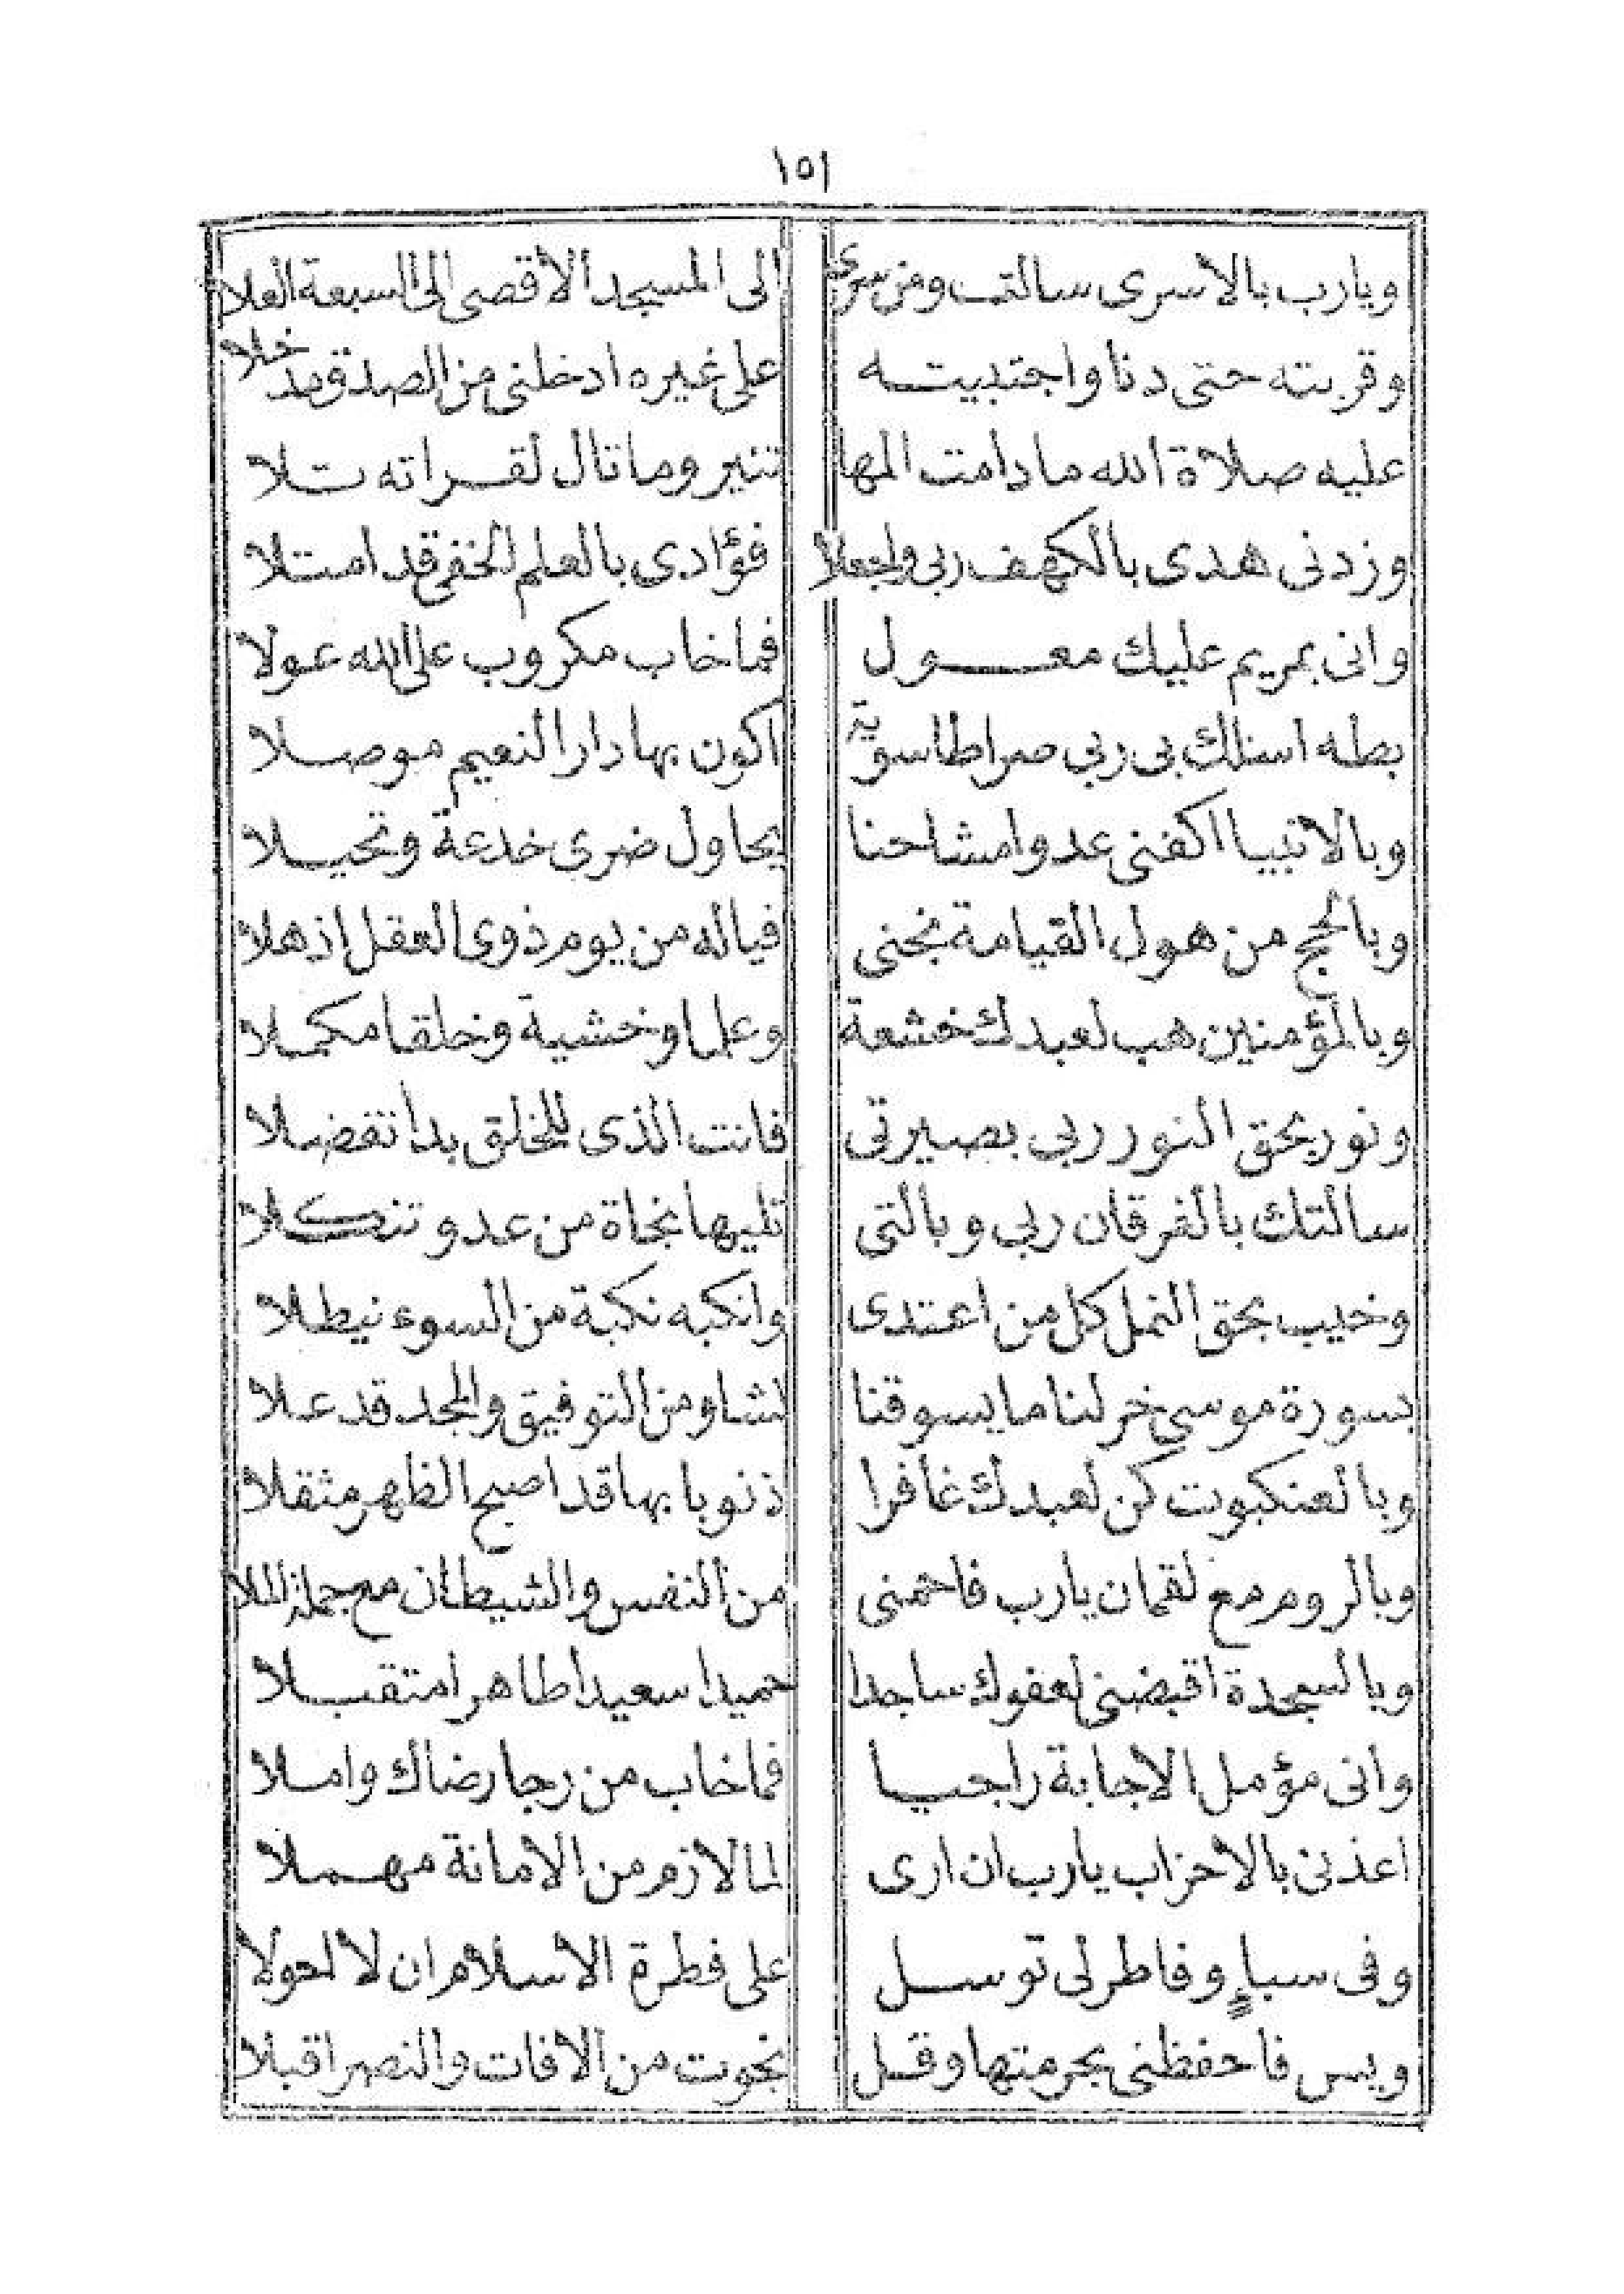 ١٥١
ويارب بالاسرى سالتك ومن سرى الى المسجد الاقصى الى السبعة العلا
وقربته حتى دنا واجتبيته على غيره ادخلنى من الصدق مدخلا
عليه صلاة الله مادامت المها تنير وما تال لقراته تلا
وزدنى هدى بالكهف ربى واجعلا فؤادى بالعلم الخفى قد امتلا
وانى بمريم عليك معول فما خاب مكروب على الله عولا
بطه اسلك بى ربى صراطا سوية اكون بها دار النعيم موصلا
وبالانبيا اكفنى عدوا مشاحنا يحاول ضرى خدعة وتحيلا
وبالحج من هول القيامة نجنى فياله من يوم ذوى العقل اذهلا
وبالمؤمنين هب لعبدك خشعة وعلما وخشية وخلقا مكملا
ونور بحق النور ربى بصيرتى فانت الذى للخلق بدا تفضلا
سالتك بالفرقان ربى وبالتى تليها نجاة من عدو تنكلا
وخيب بحق النمل كل من اعتدى وانكبه نكبة من السوء نيطلا
بسورة موسى خر لنا ما يسوقنا لشاو من التوفيق والمجد قد علا
وبالعنكبوت كن لعبدك غافرا ذنوبا بها قد اصبح الظهر مثقلا
وبالروم مع لقمان يارب فاحمنى من النفس والشيطان مع جملة الملا
وبالسجدة اقبضنى لعفوك ساجدا حميدا سعيدا طاهرا متقبلا
وانى مؤمل الاجابة راجيا فما خاب من رجا رضاك واملا
اعذنى بالاحزاب يارب ان ارى لما لازم من الامانة مهملا
وفى سباٍ وفاطر لى توسل على فطرة الاسلام ان لا احولا
ويس فاحفظنى بحرمتها وقل نجوت من الافات والنصر اقبلا